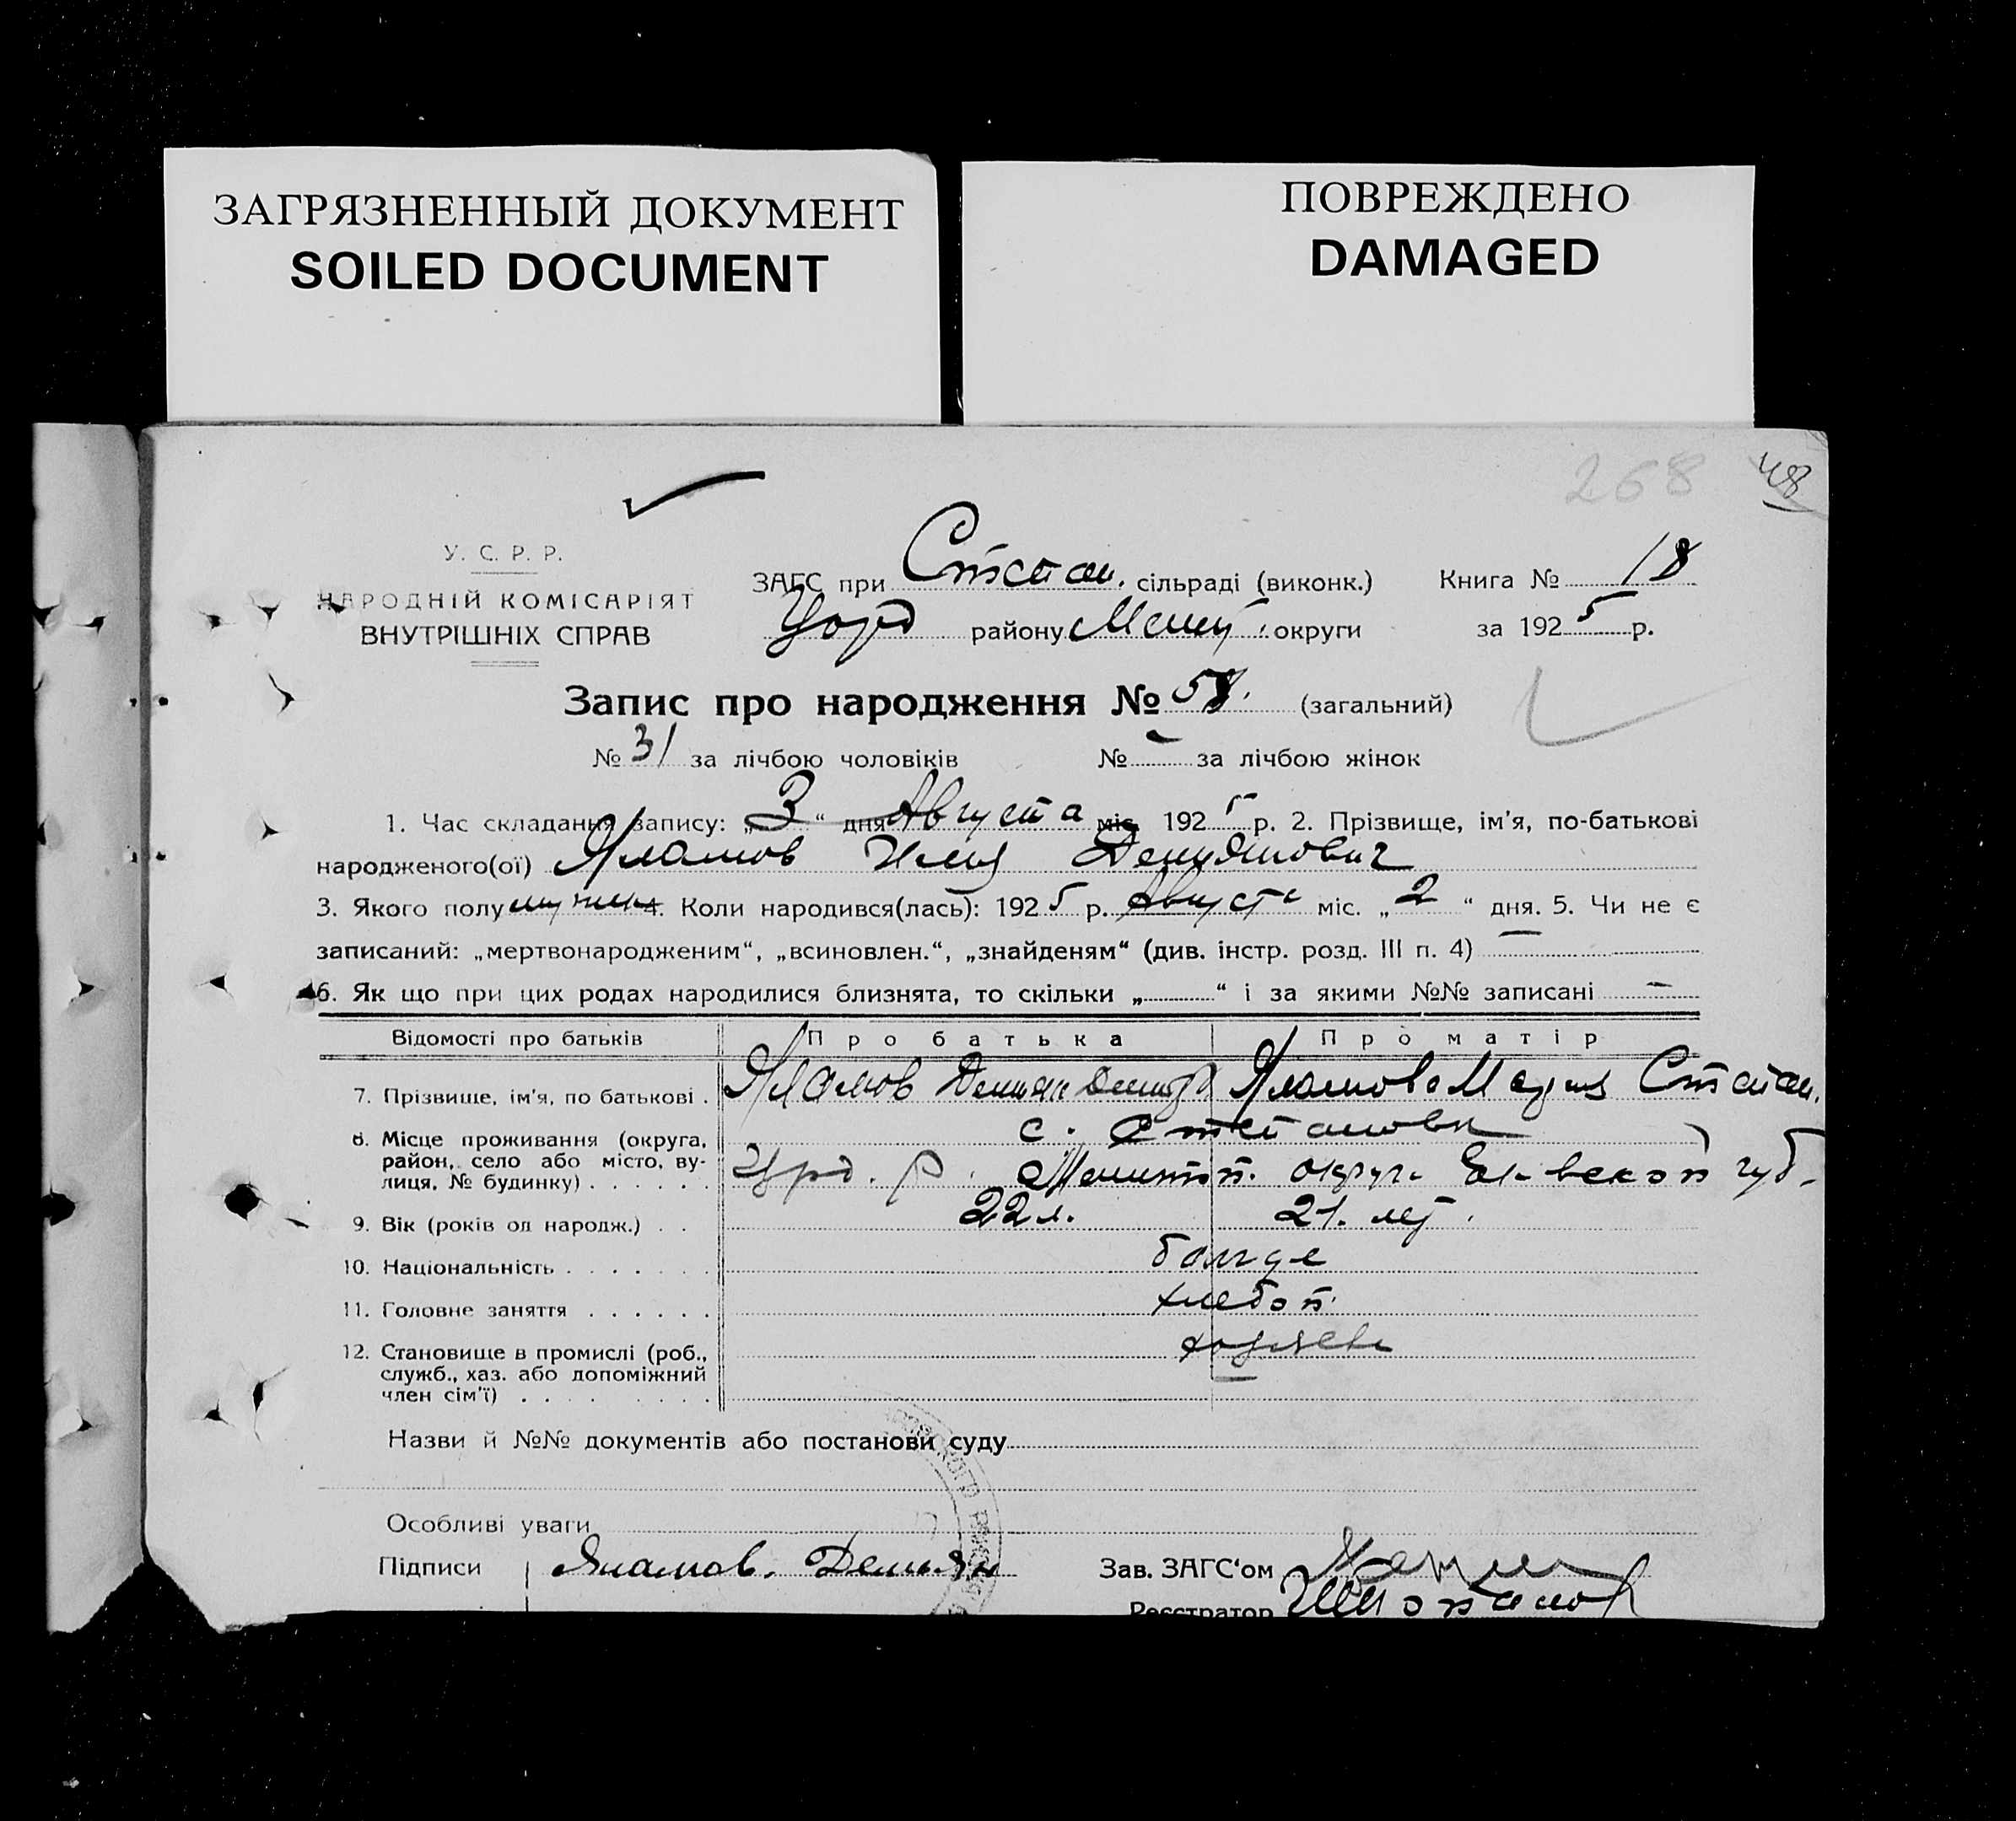 ЗАГРЯЗНЕННЫЙ ДОКУМЕНТ
SOILED DOCUMENT
ПОВРЕЖДЕНО
DAMAGED
268 48
У. С. Р. Р.
НАРОДНІЙ КОМІСАРІЯТ
ВНУТРІШНІХ СПРАВ
ЗАГС при Степан. сільраді (виконк.) Книга № 18
району округи за 1925 р.
Запис про народження № 58. (загальний)
№ 31 за лічбою чоловіків № - за лічбою жінок
1. Час складання запису: „3“ дня Августа міс. 1925 р. 2. Прізвище, ім'я, по-батькові
народженого(ої) Яламов Илия Демянович
3. Якого полу 4. Коли народився(лась): 1925 р. Августа міс. „2“ дня. 5. Чи не є
записаний: „мертвонародженим“, „всиновлен.“, „знайденям“ (див. інстр. розд. III п. 4) —
6. Як що при цих родах народилися близнята, то скільки „ “ і за якими №№ записані —
Відомості про батьків Про батька Про матір
7. Прізвище, ім'я, по батькові . Яламов Демьян Яламова Мария Степан.
8. Місце проживання (округа, район, село або місто, вулиця, № будинку) с. Степановка
р. Мелитоп. округа губ.
9. Вік (років од народж.) . . 22 л. 21. лет.
10. Національність болгаре
11. Головне заняття хлебоп.
12. Становище в промислі (роб., служб., хаз. або допоміжний член сім'ї)
Назви й №№ документів або постанови суду
Особливі уваги
Підписи Яламов. Демьян Зав. ЗАГС'ом
Реєстратор